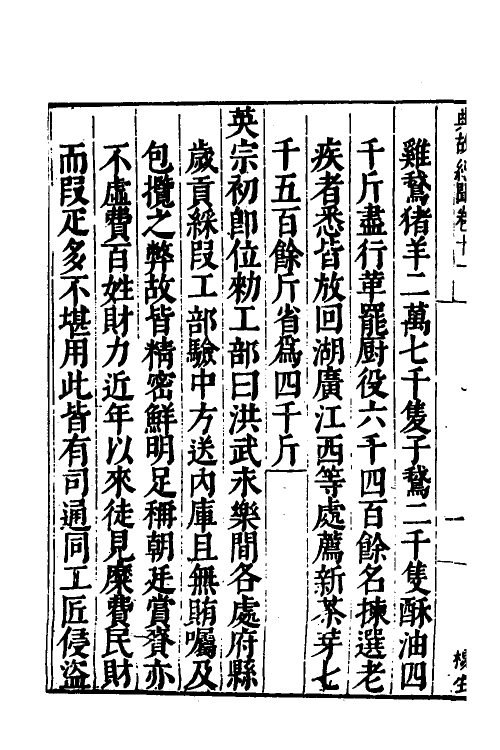 典故紀聞卷十一
一
雞鵞猪羊二萬七千隻子鵞二千隻酥油四
千斤盡行革罷厨役六千四百餘名揀選老
疾者悉皆放回湖廣江西等處薦新茶芽七
千五百餘斤省爲四千斤
英宗初卽位勑工部曰洪武永樂間各處府縣
歲貢綵叚工部驗中方送內庫且無賄囑及
包攬之弊故皆精密鮮明足稱朝廷賞賚亦
不虛費百姓財力近年以來徒見糜費民財
而叚疋多不堪用此皆有司通同工匠侵盜